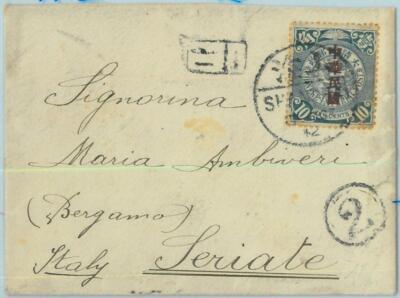 10 CENTS 10
Signorina
Maria Ambiveri
(Bergamo)
Italy Seriate
2